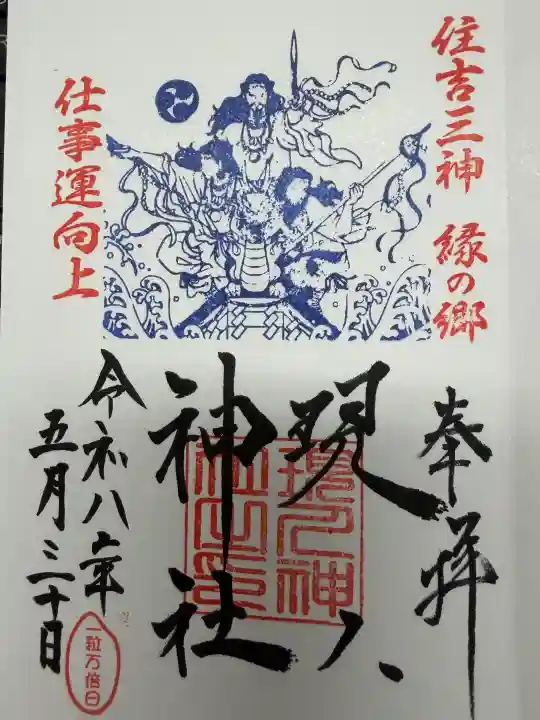 住吉三神 縁の郷
仕事運向上
奉拝
現人
神社
現人神
社之印
令和八年
五月三十日
一粒万倍日